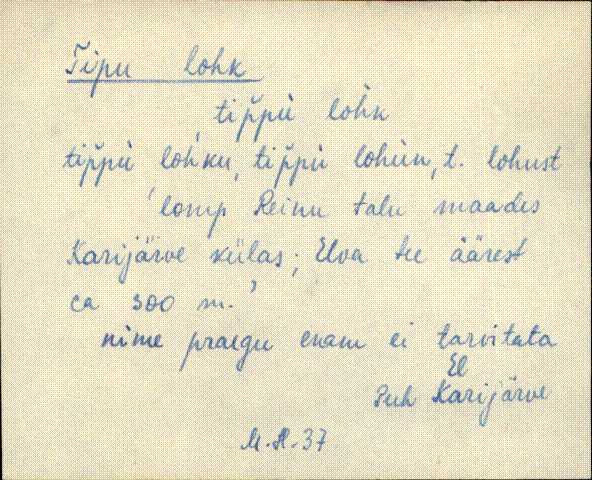 Tipu lohk
tip̆pù loh̀k
tip̆pù lohku, tip̆pù lohùn, t. lohust
'lomp Reinu talu maades
Karijärve külas; Elva tee äärest
ca 300 m.
nime praegu enam ei tarvitata
El
Puh Karijärve
M.R.37